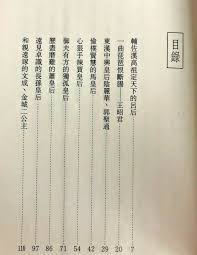 目錄
輔佐漢高祖定天下的呂后 7
一曲琵琶恨斷腸——王昭君 20
東漢中興皇后陰麗華、郭聖通 29
儉樸賢慧的馬皇后 42
心狠手辣賈皇后 54
御夫有方的獨孤皇后 71
歷盡磨難的蕭皇后 86
遠見卓識的長孫皇后 97
和親遠嫁的文成、金城二公主 110